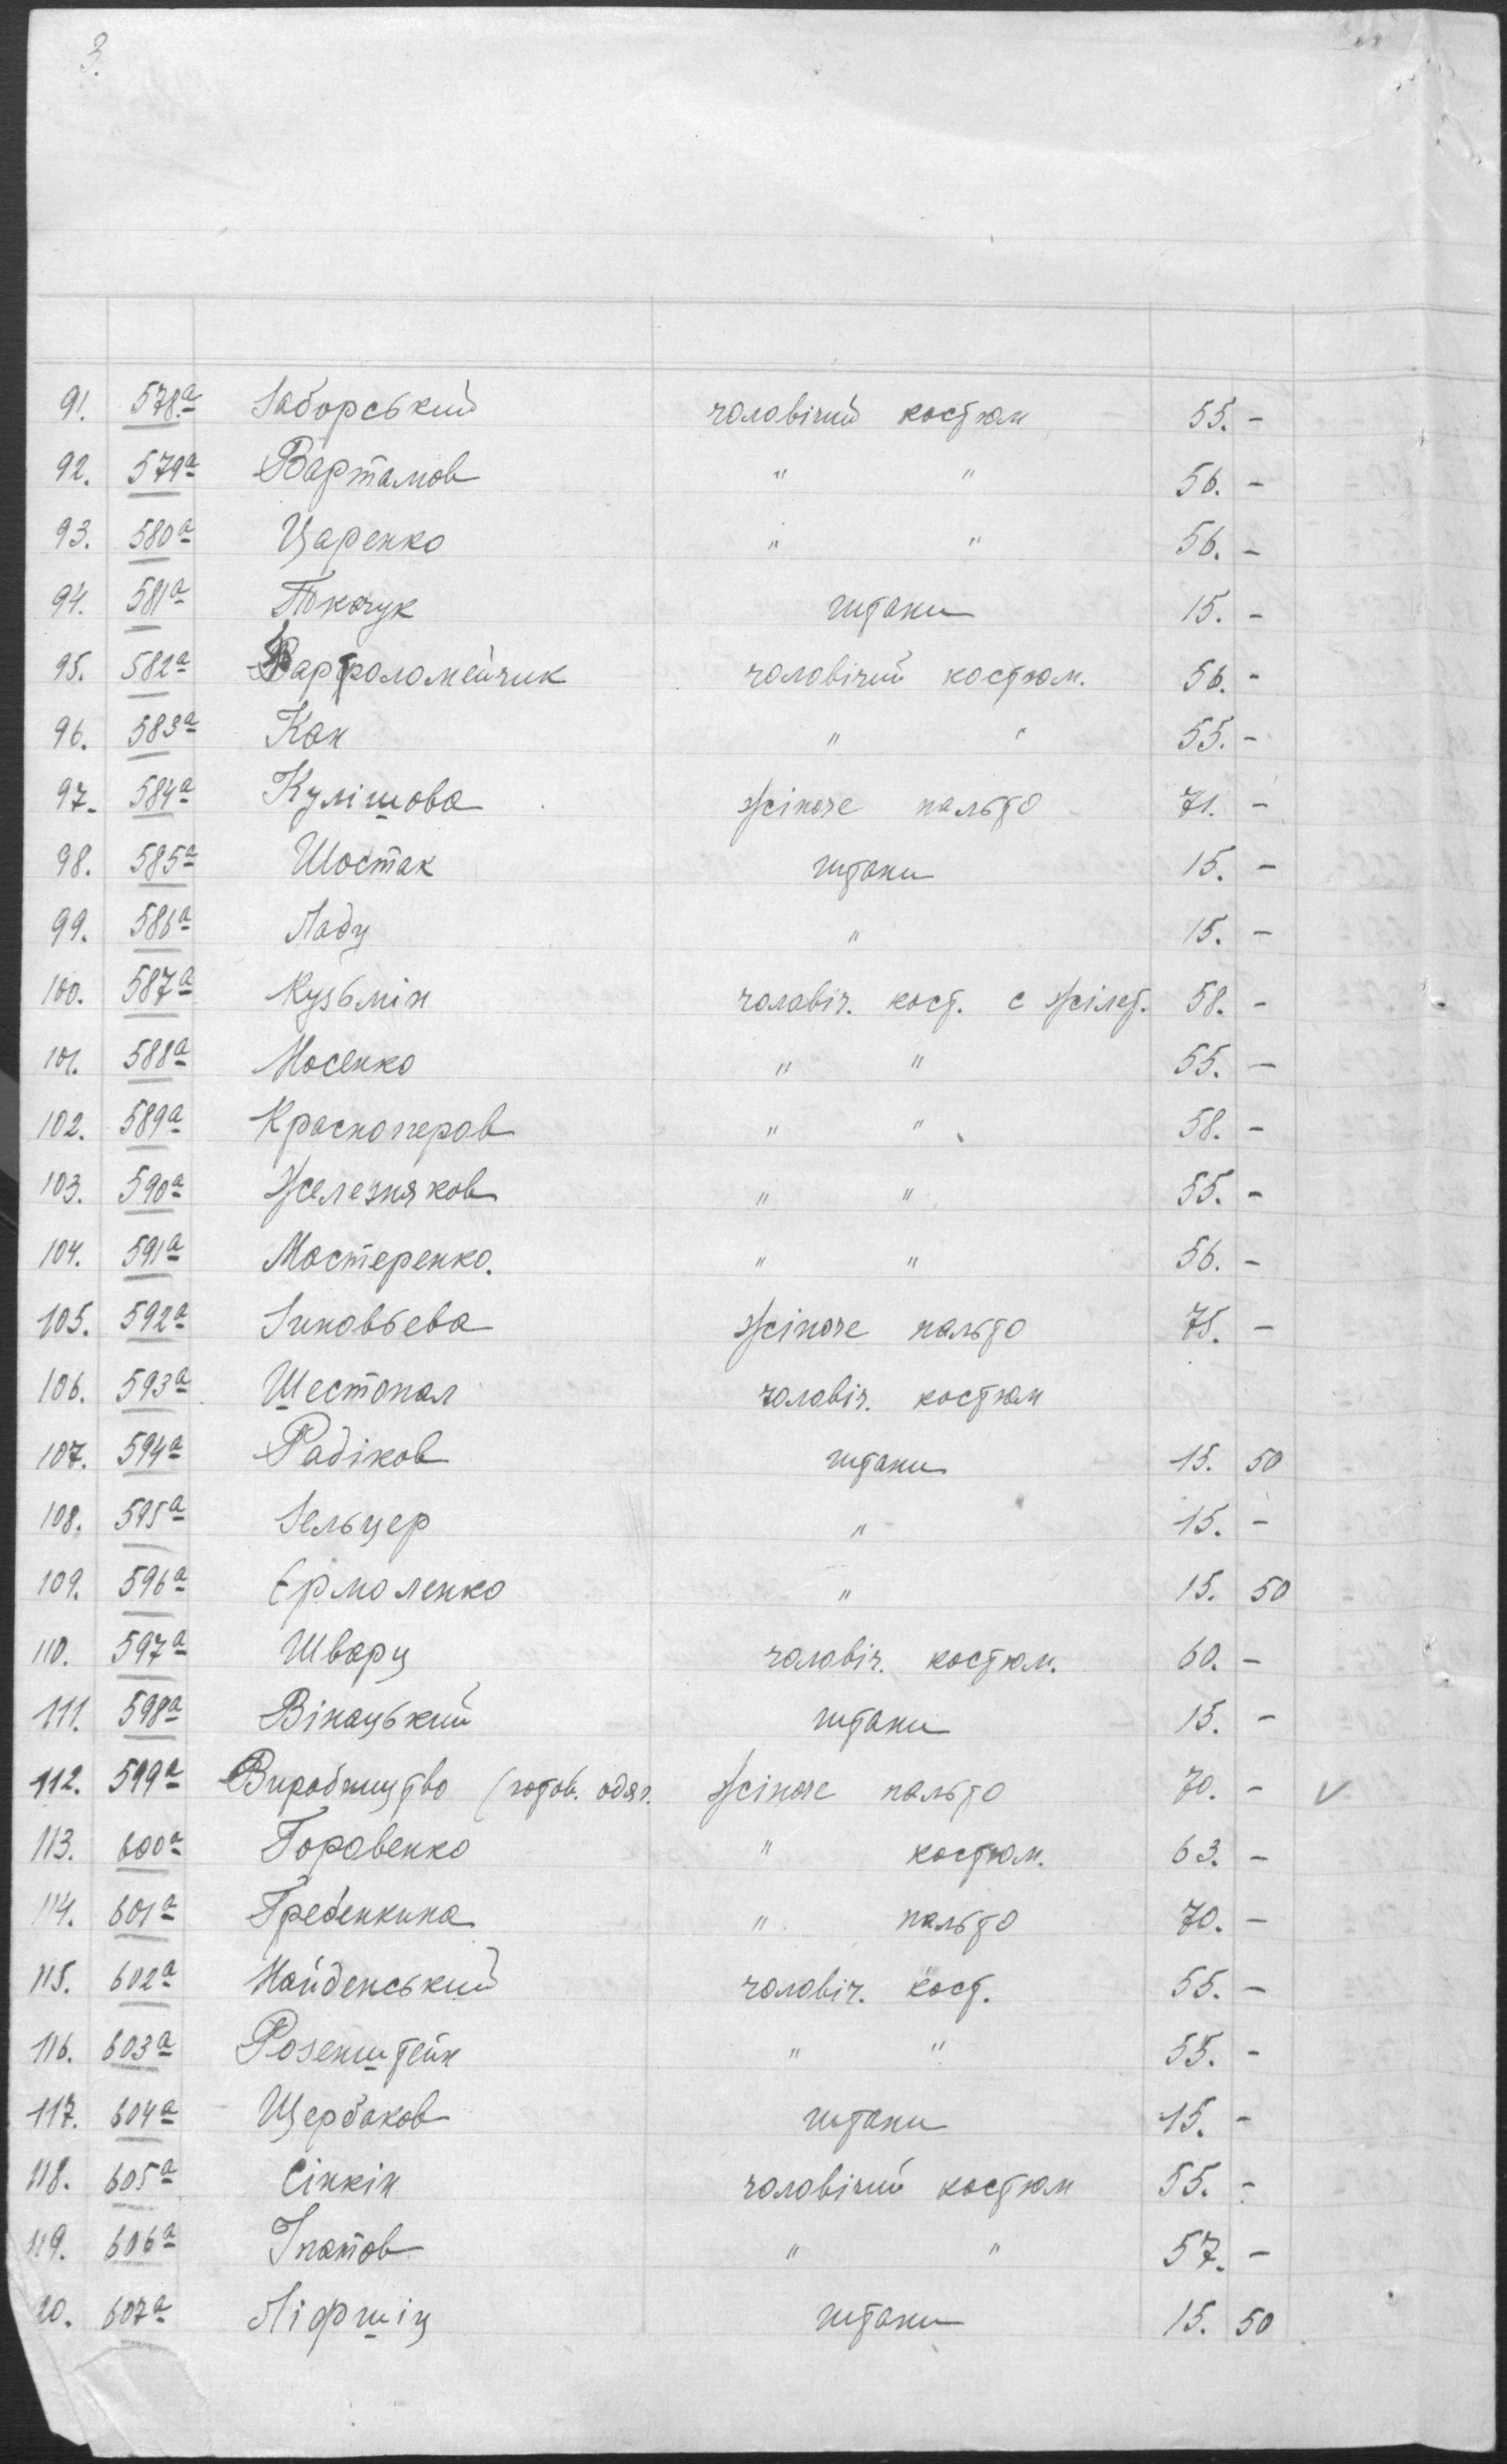 3.
91. 578а Заборський чоловічий костюм 55. -
92. 579а Вартамов " " 56. -
93. 580а Царенко " " 56. -
94. 581а Ткачук штани 15. -
95. 582а Варфоломейчик чоловічий костюм. 56. -
96. 583а Кан " " 55. -
97. 584а Кулішова жіноче пальто 71. -
98. 585а Шостак штани 15. -
99. 586а Ладу " 15. -
100. 587а Кузьмін чоловіч. кост. с жілет. 58. -
101. 588а Носенко " " 55. -
102. 589а Красноперов " " 58. -
103. 590а Железняков " " 55. -
104. 591а Мастеренко. " " 56. -
105. 592а Зиновьева жіноче пальто 75. -
106. 593а Шестопал чоловіч. костюм
107. 594а Радіков штани 15. 50
108. 595а Зельцер " 15. -
109. 596а Ермоленко " 15. 50
110. 597а Шварц чоловіч. костюм. 60. -
111. 598а Вінацький штани 15. -
112. 599а Виробництво (готов. одяг. жіноче пальто 70. - V
113. 600а Горовенко " костюм. 63. -
114. 601а Гребенкина " пальто 70. -
115. 602а Найденський чоловіч. кост. 55. -
116. 603а Розенштейн " " 55. -
117. 604а Щербаков штани 15. -
118. 605а Сінкін чоловічий костюм 55. -
119. 606а Іпатов " " 57. -
20. 607а Ліфшіц штани 15. 50